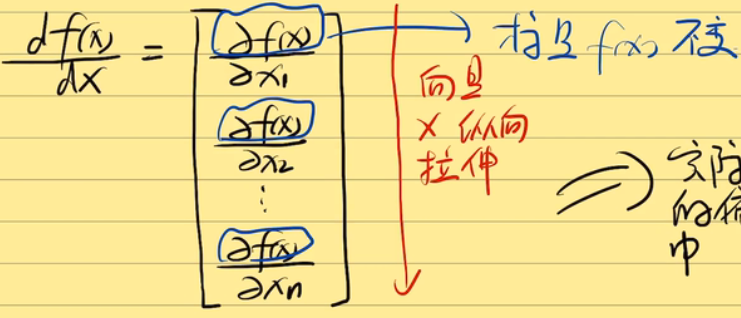 df(x)/dx = [∂f(x)/∂x₁
∂f(x)/∂x₂
⋮
∂f(x)/∂xₙ]
标量 f(x) 不变
向量
x 纵向
拉伸
⇒ 实际
的
中